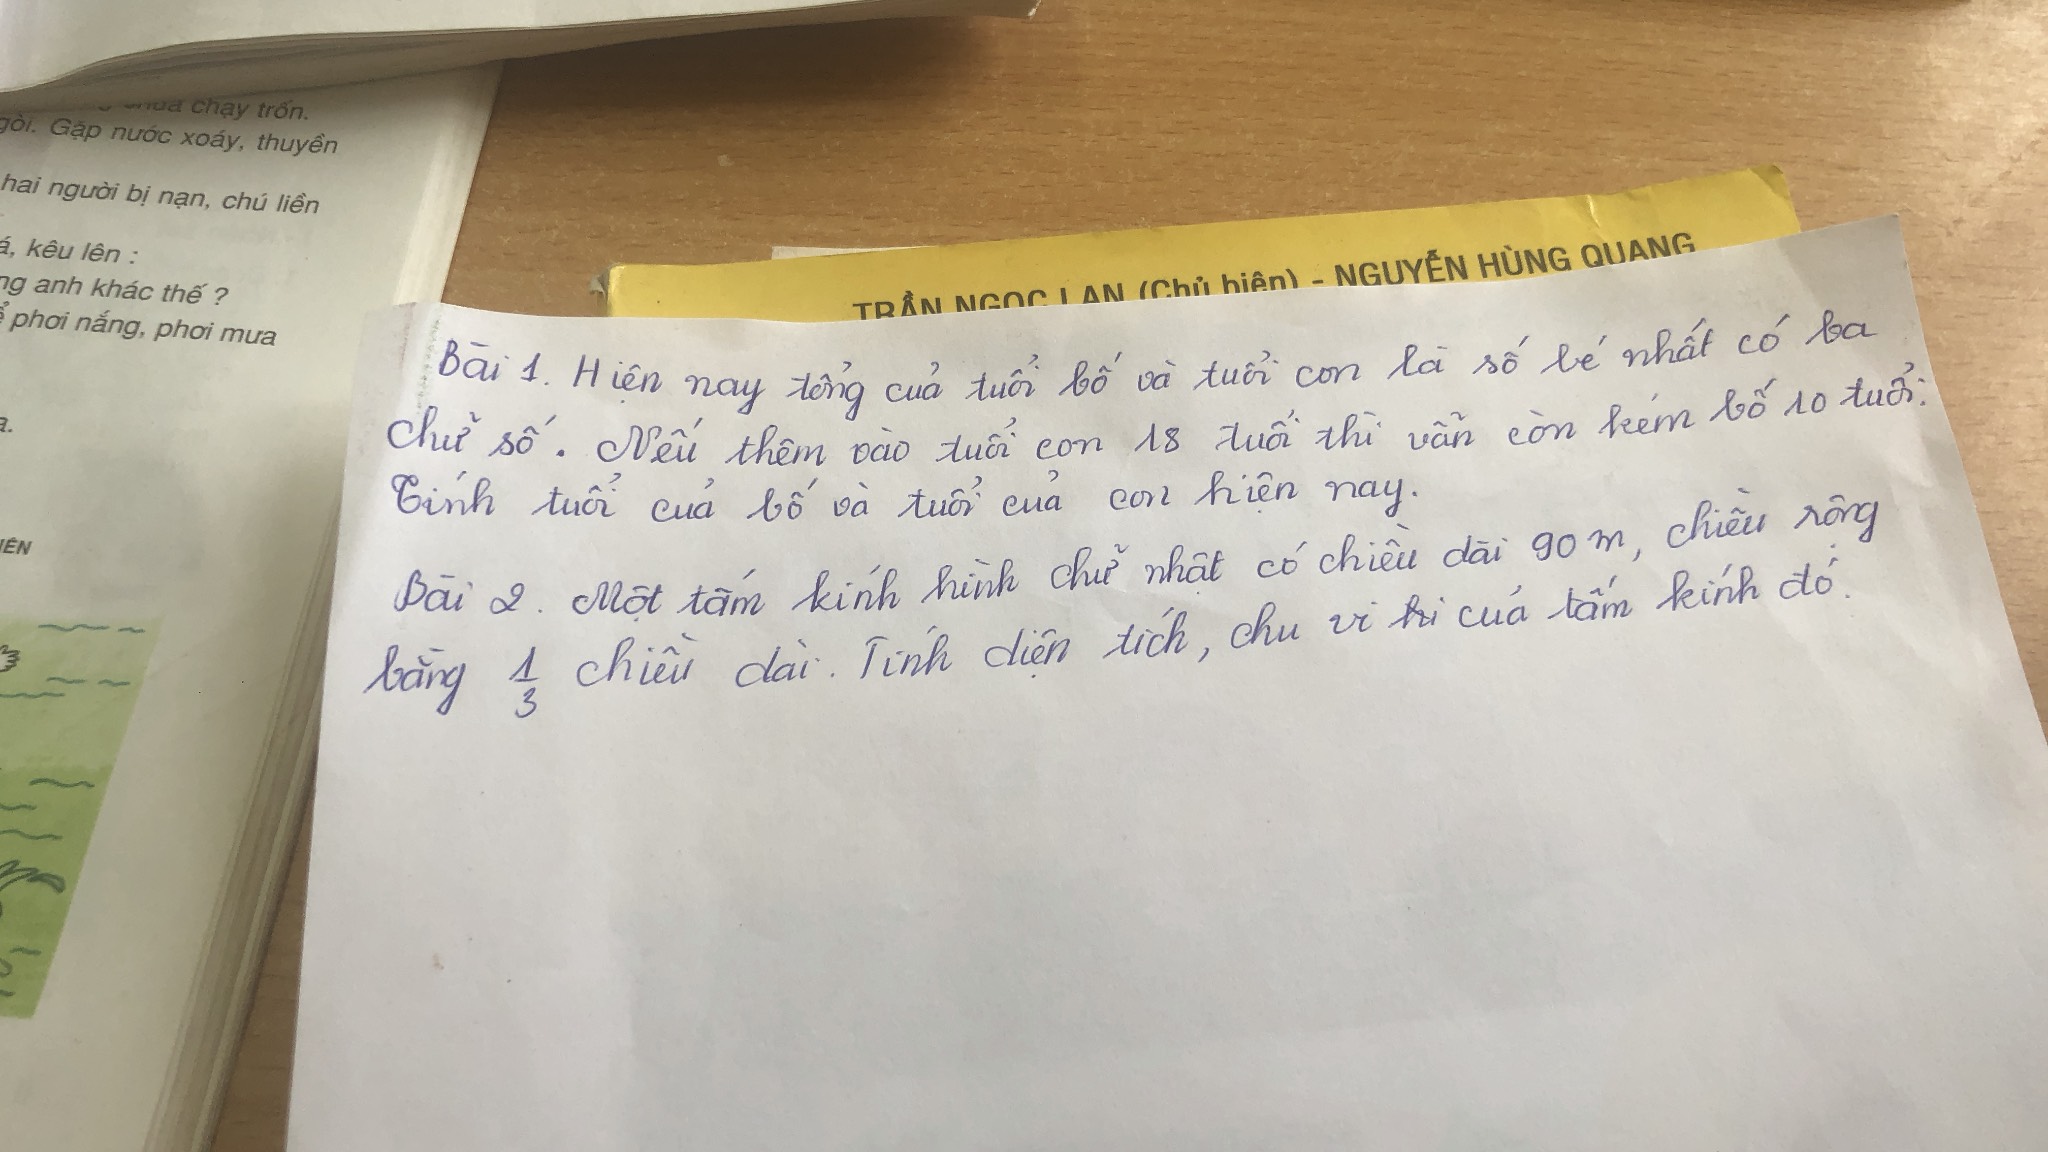 chạy trốn.
Gặp nước xoáy, thuyền
hai người bị nạn, chú liền
kêu lên :
anh khác thế ?
phơi nắng, phơi mưa
TRẦN NGỌC LAN (Chủ biên) - NGUYỄN HÙNG QUANG
Bài 1. Hiện nay tổng cuả tuổi bố và tuổi con là số bé nhất có ba
chữ số. Nếu thêm vào tuổi con 18 tuổi thì vẫn còn kém bố 10 tuổi.
Tính tuổi cuả bố và tuổi cuả con hiện nay.
Bài 2. Một tấm kính hình chữ nhật có chiều dài 90 m, chiều rộng
bằng 1/3 chiều dài. Tính diện tích, chu vi cuả tấm kính đó.